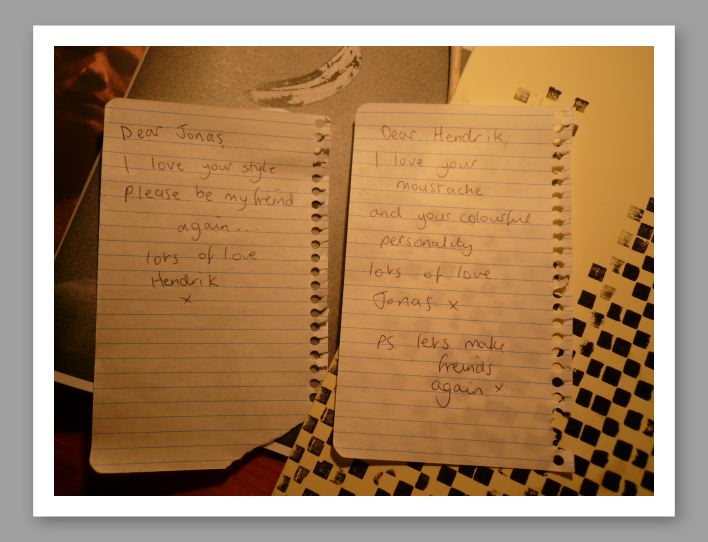 Dear Jonas,
I love your style
please be my freind
again....
lots of love
Hendrik
x
Dear Hendrik,
I love your
moustache
and your colourful
personality
lots of love
Jonas x
PS. lets make
freinds
again x